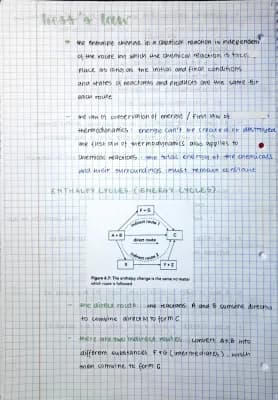 Hess's law
- the enthalpy change in a chemical reaction is independent
of the route by which the chemical reaction takes
place as long as the initial and final conditions
and states of reactants and products are the same for
each route
- the law of conservation of energy / first law of
thermodynamics: energy can't be created or destroyed
the first law of thermodynamics also applies to
chemical reactions: the total energy of the chemicals
and their surroundings must remain constant
ENTHALPY CYCLES (ENERGY CYCLES)
F + G
indirect route 1
A + B
C
direct route
indirect route 2
Y + Z
Figure 6.7: The enthalpy change is the same no matter
which route is followed
- the direct route: the reactants A and B combine directly
to combine directly to form C
- there are two indirect routes: convert A+B into
different substances F+G (intermediates), which
then combine to form C